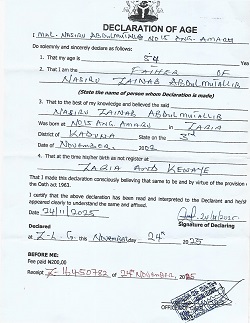 DECLARATION OF AGE
I, MAL. NASIRU ABDULMUTALIB NO15 ANG. AMARU
Do solemnly and sincerely declare as follows:
1. That my age is 54 Yea
2. That I am the FATHER OF
NASIRU ZAINAB ABDULMUTALLIB
(State the name of person whose Declaration is made)
3. That to the best of my knowledge and believed the said
NASIRU ZAINAB ABDULMUTALLIB
Was born at NO15 ANG. AMARU in ZARIA
District of KADUNA State on the 3rd
Date of NOVEMBER,
4. That at the time his/her birth as not register at
ZARIA AND KEWAYE
That I made this declaration consciously believing that same to be and by virtue of the provision o
the Oath act 1963.
I certify that the above declaration has been read and interpreted to the Declarant and he/s
appeared clearly to understand the same and affixed.
Date 24/11/2025
Signature of Declaring
Declared
at Z-L-G. this NOVEMBER day 24th 2025
BEFORE ME:
Fee paid N200,00
Receipt Z-1L450782 of 24th NOVEMBER, 2025